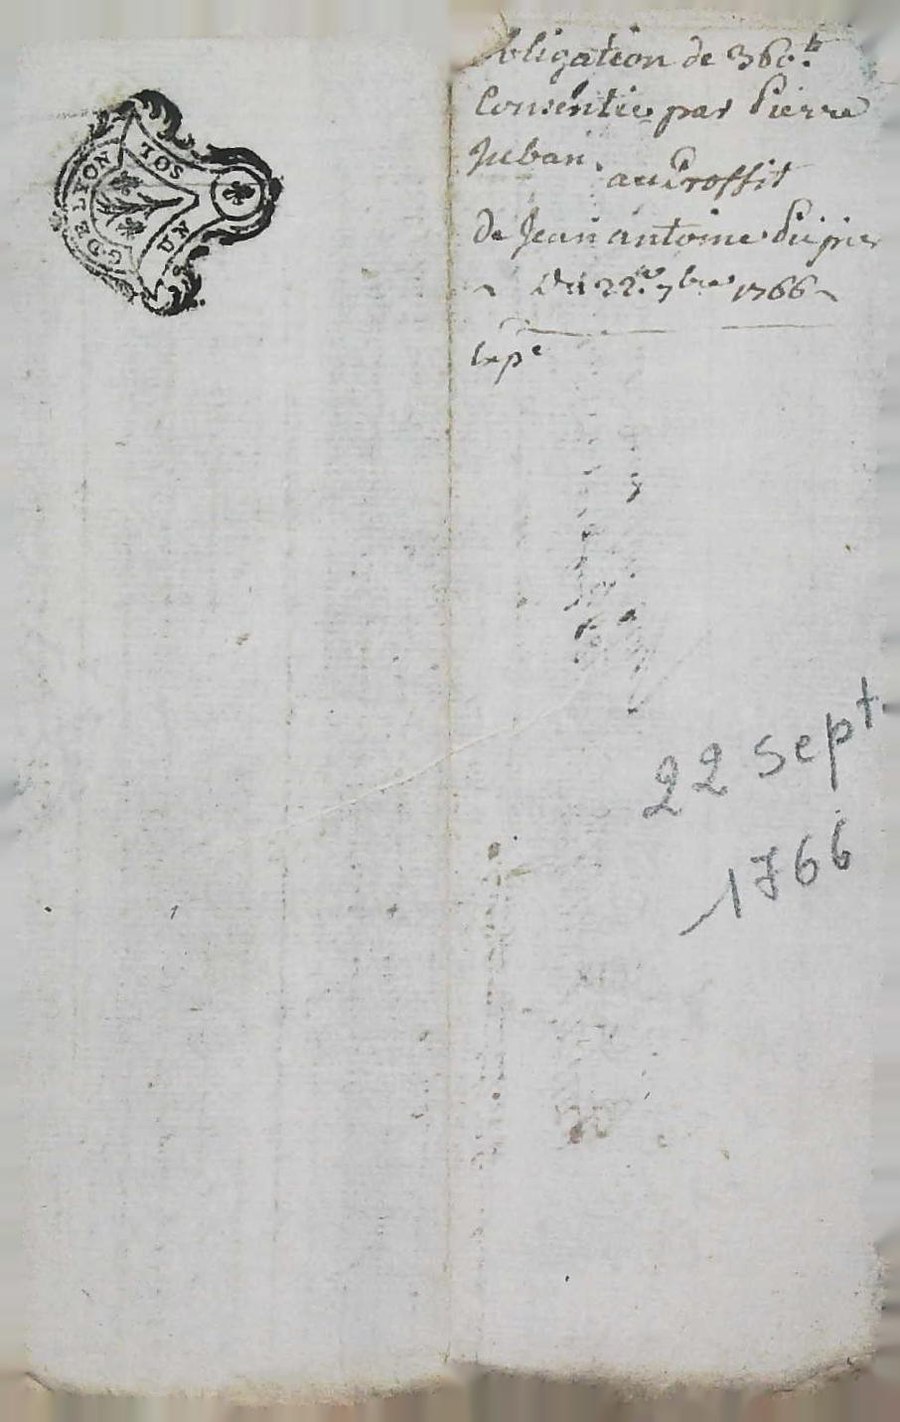 G. DE LYON
UN SOL
obligation de 360.tt
Consentie par Pierre
Juban.
au Proffit
de Jean antoine
Du 22.e 7bre 1766
Exp.e
22 Sept.
1766